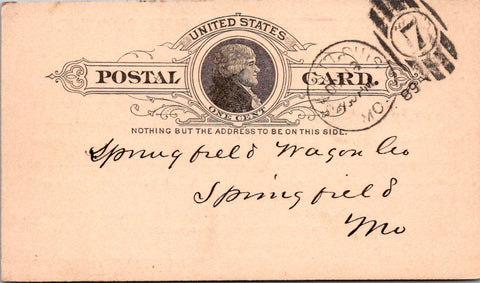 UNITED STATES
POSTAL CARD.
ONE CENT
NOTHING BUT THE ADDRESS TO BE ON THIS SIDE.
MO.
89
7
Springfield Wagon Co
Springfield
Mo